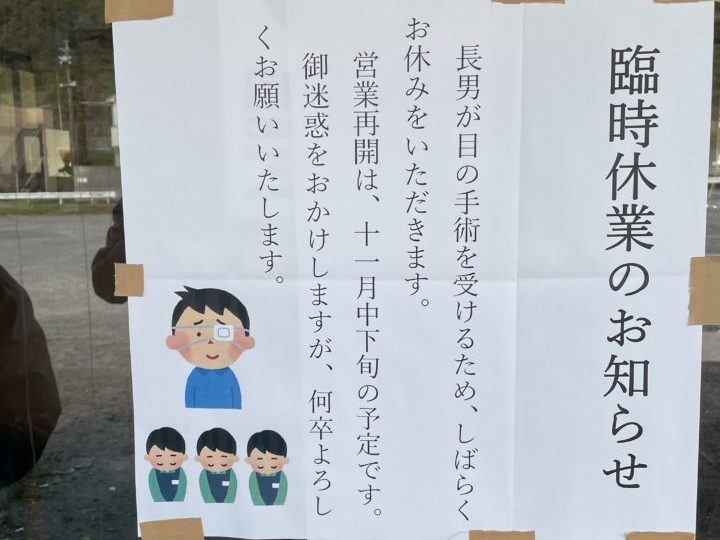 臨時休業のお知らせ
長男が目の手術を受けるため、しばらく
お休みをいただきます。
営業再開は、十一月中下旬の予定です。
御迷惑をおかけしますが、何卒よろし
くお願いいたします。